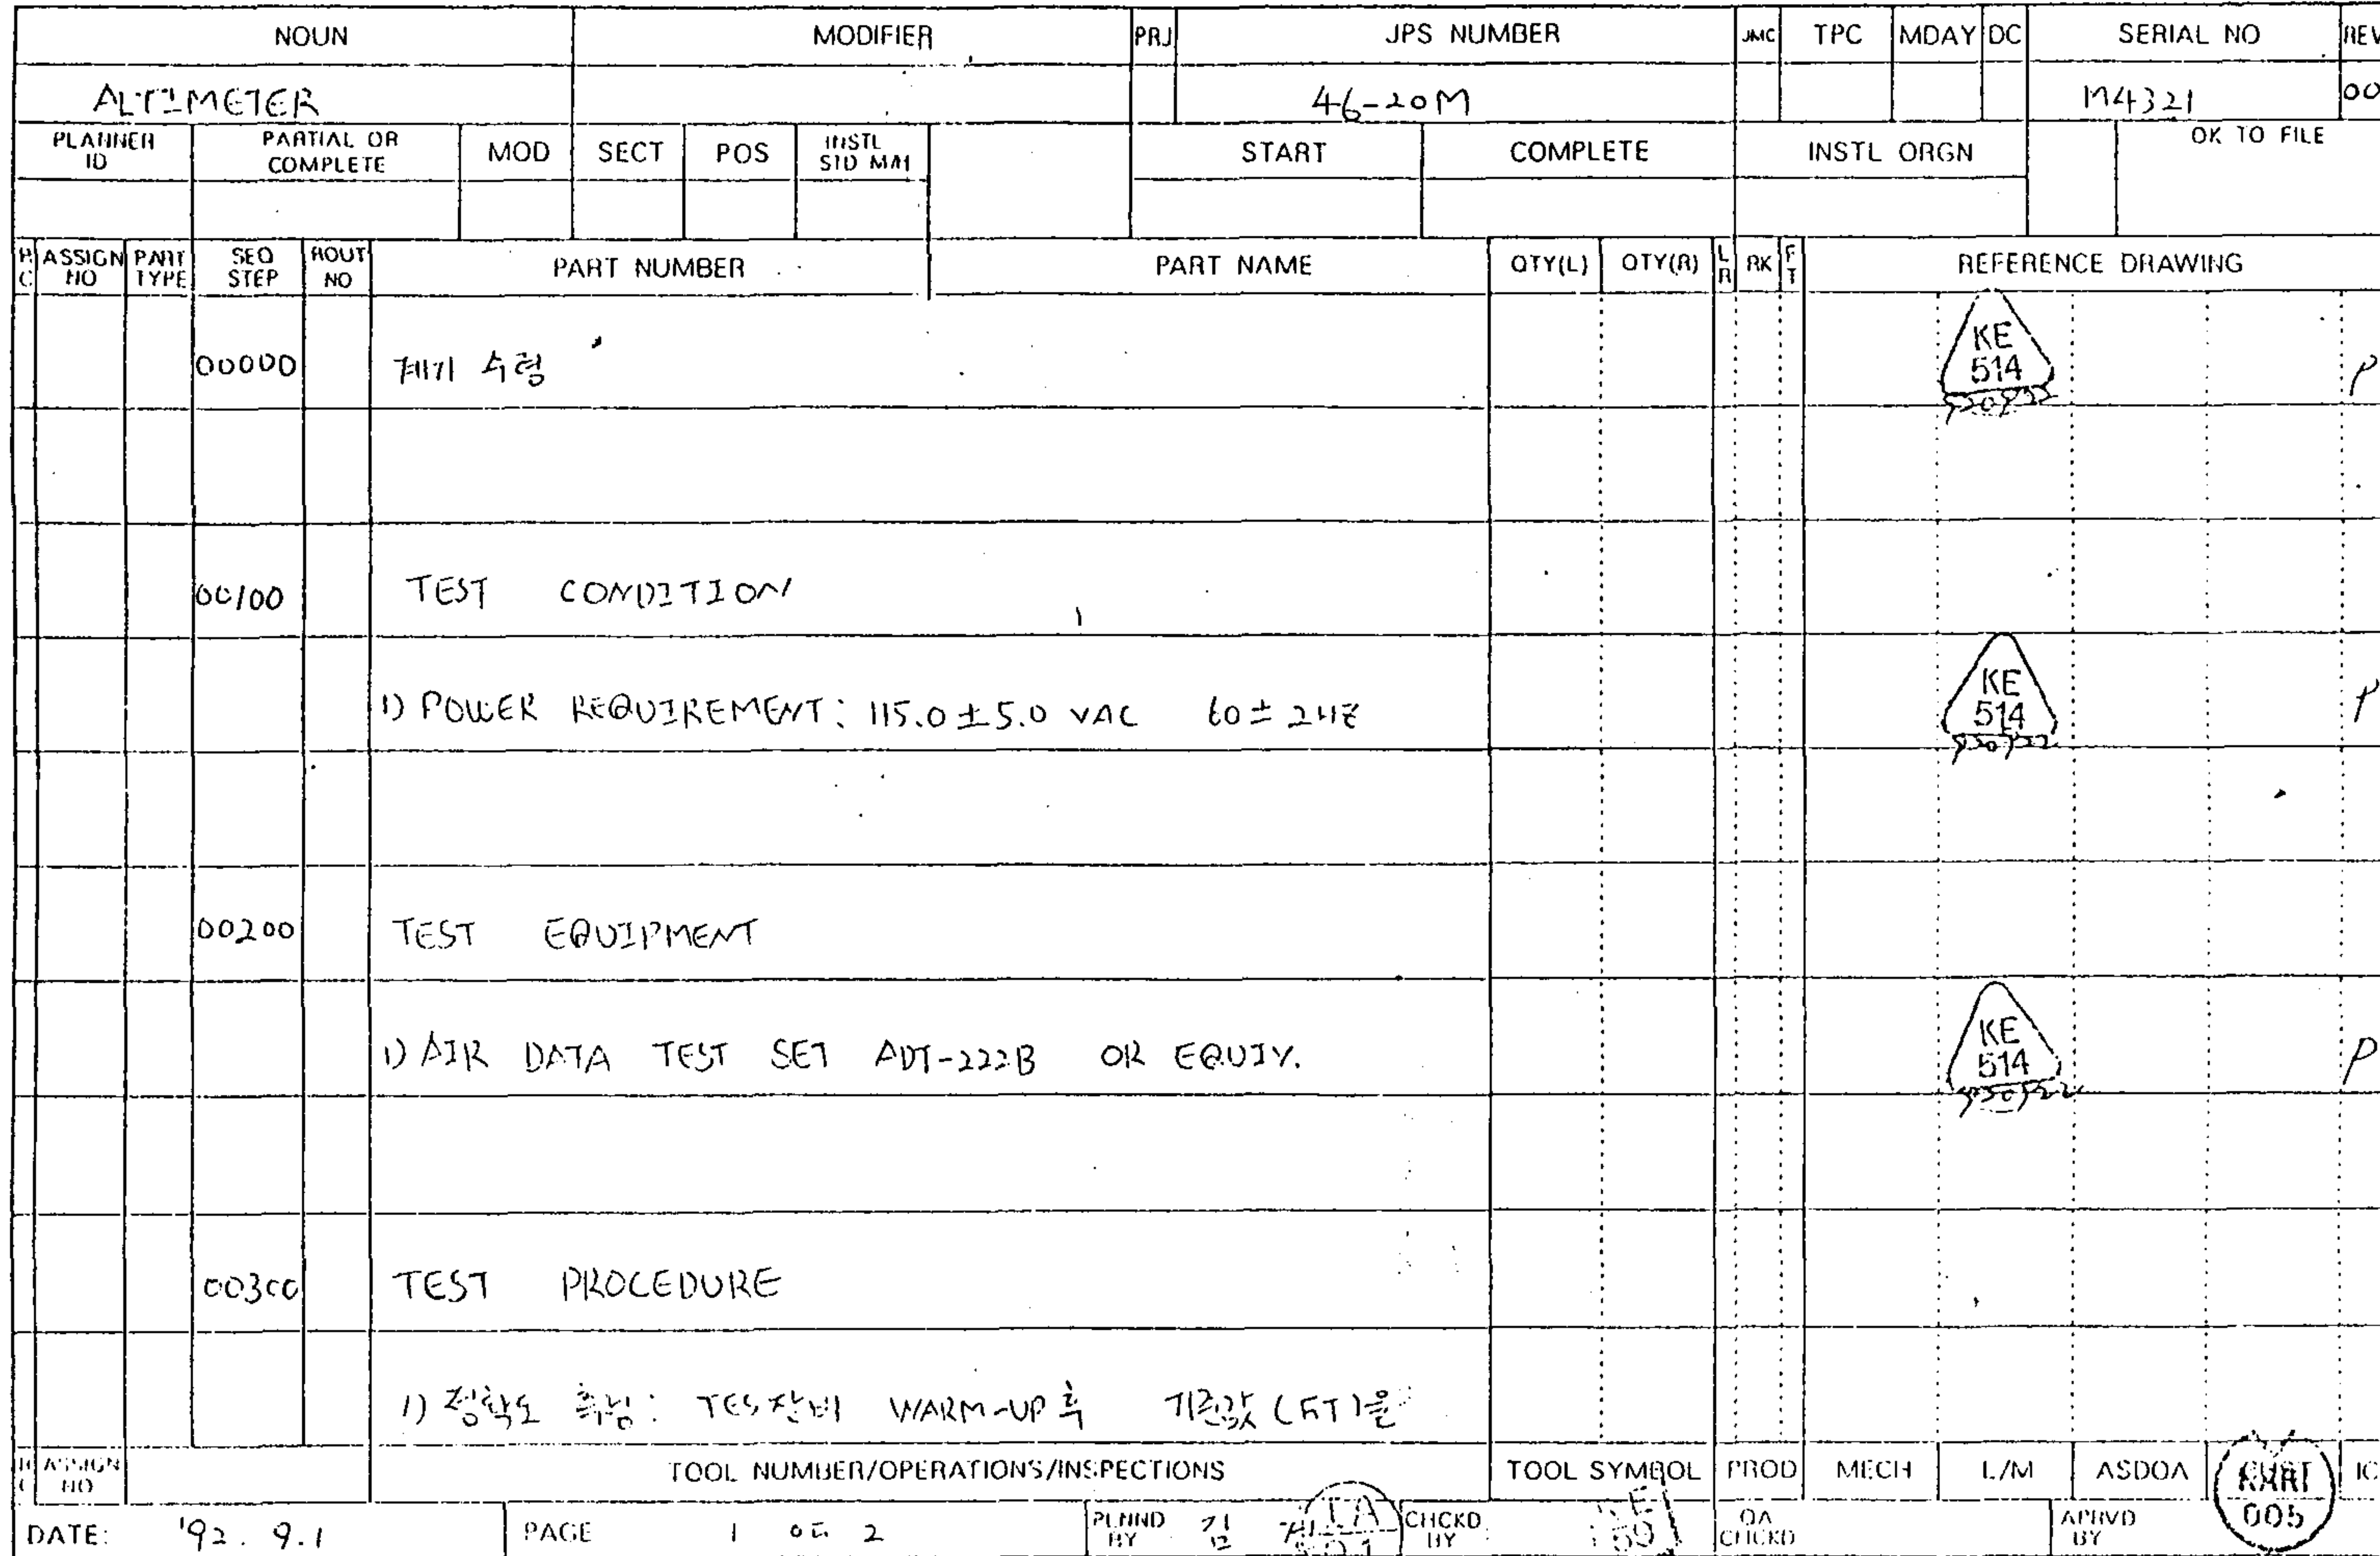 NOUN MODIFIER PRJ JPS NUMBER JMC TPC MDAY DC SERIAL NO REV
ALTIMETER 46-20M M4321 00
PLANNER ID PARTIAL OR COMPLETE MOD SECT POS INSTL STD M/H START COMPLETE INSTL ORGN OK TO FILE
R C ASSIGN NO PART TYPE SEQ STEP ROUT NO PART NUMBER PART NAME QTY(L) QTY(R) L R RK F T REFERENCE DRAWING
00000 계기 수령 KE 514 P
00100 TEST CONDITION
1) POWER REQUIREMENT: 115.0±5.0 VAC 60±2HZ KE 514 P
00200 TEST EQUIPMENT
1) AIR DATA TEST SET ADT-222B OR EQUIV. KE 514 P
00300 TEST PROCEDURE
1) 정확도 측정: TES장비 WARM-UP후 기준값(FT)을
ASSIGN NO TOOL NUMBER/OPERATIONS/INSPECTIONS TOOL SYMBOL PROD MECH L/M ASDOA KARI 005
DATE: '92. 9. 1 PAGE 1 OF 2 PLNND BY 김 CHCKD BY QA CHCKD APRVD BY